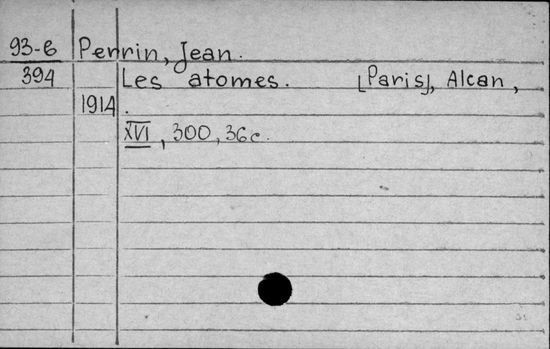 93-6 Perrin, Jean.
394 Les atomes. [Paris], Alcan,
1914.
XVI, 300, 36c.